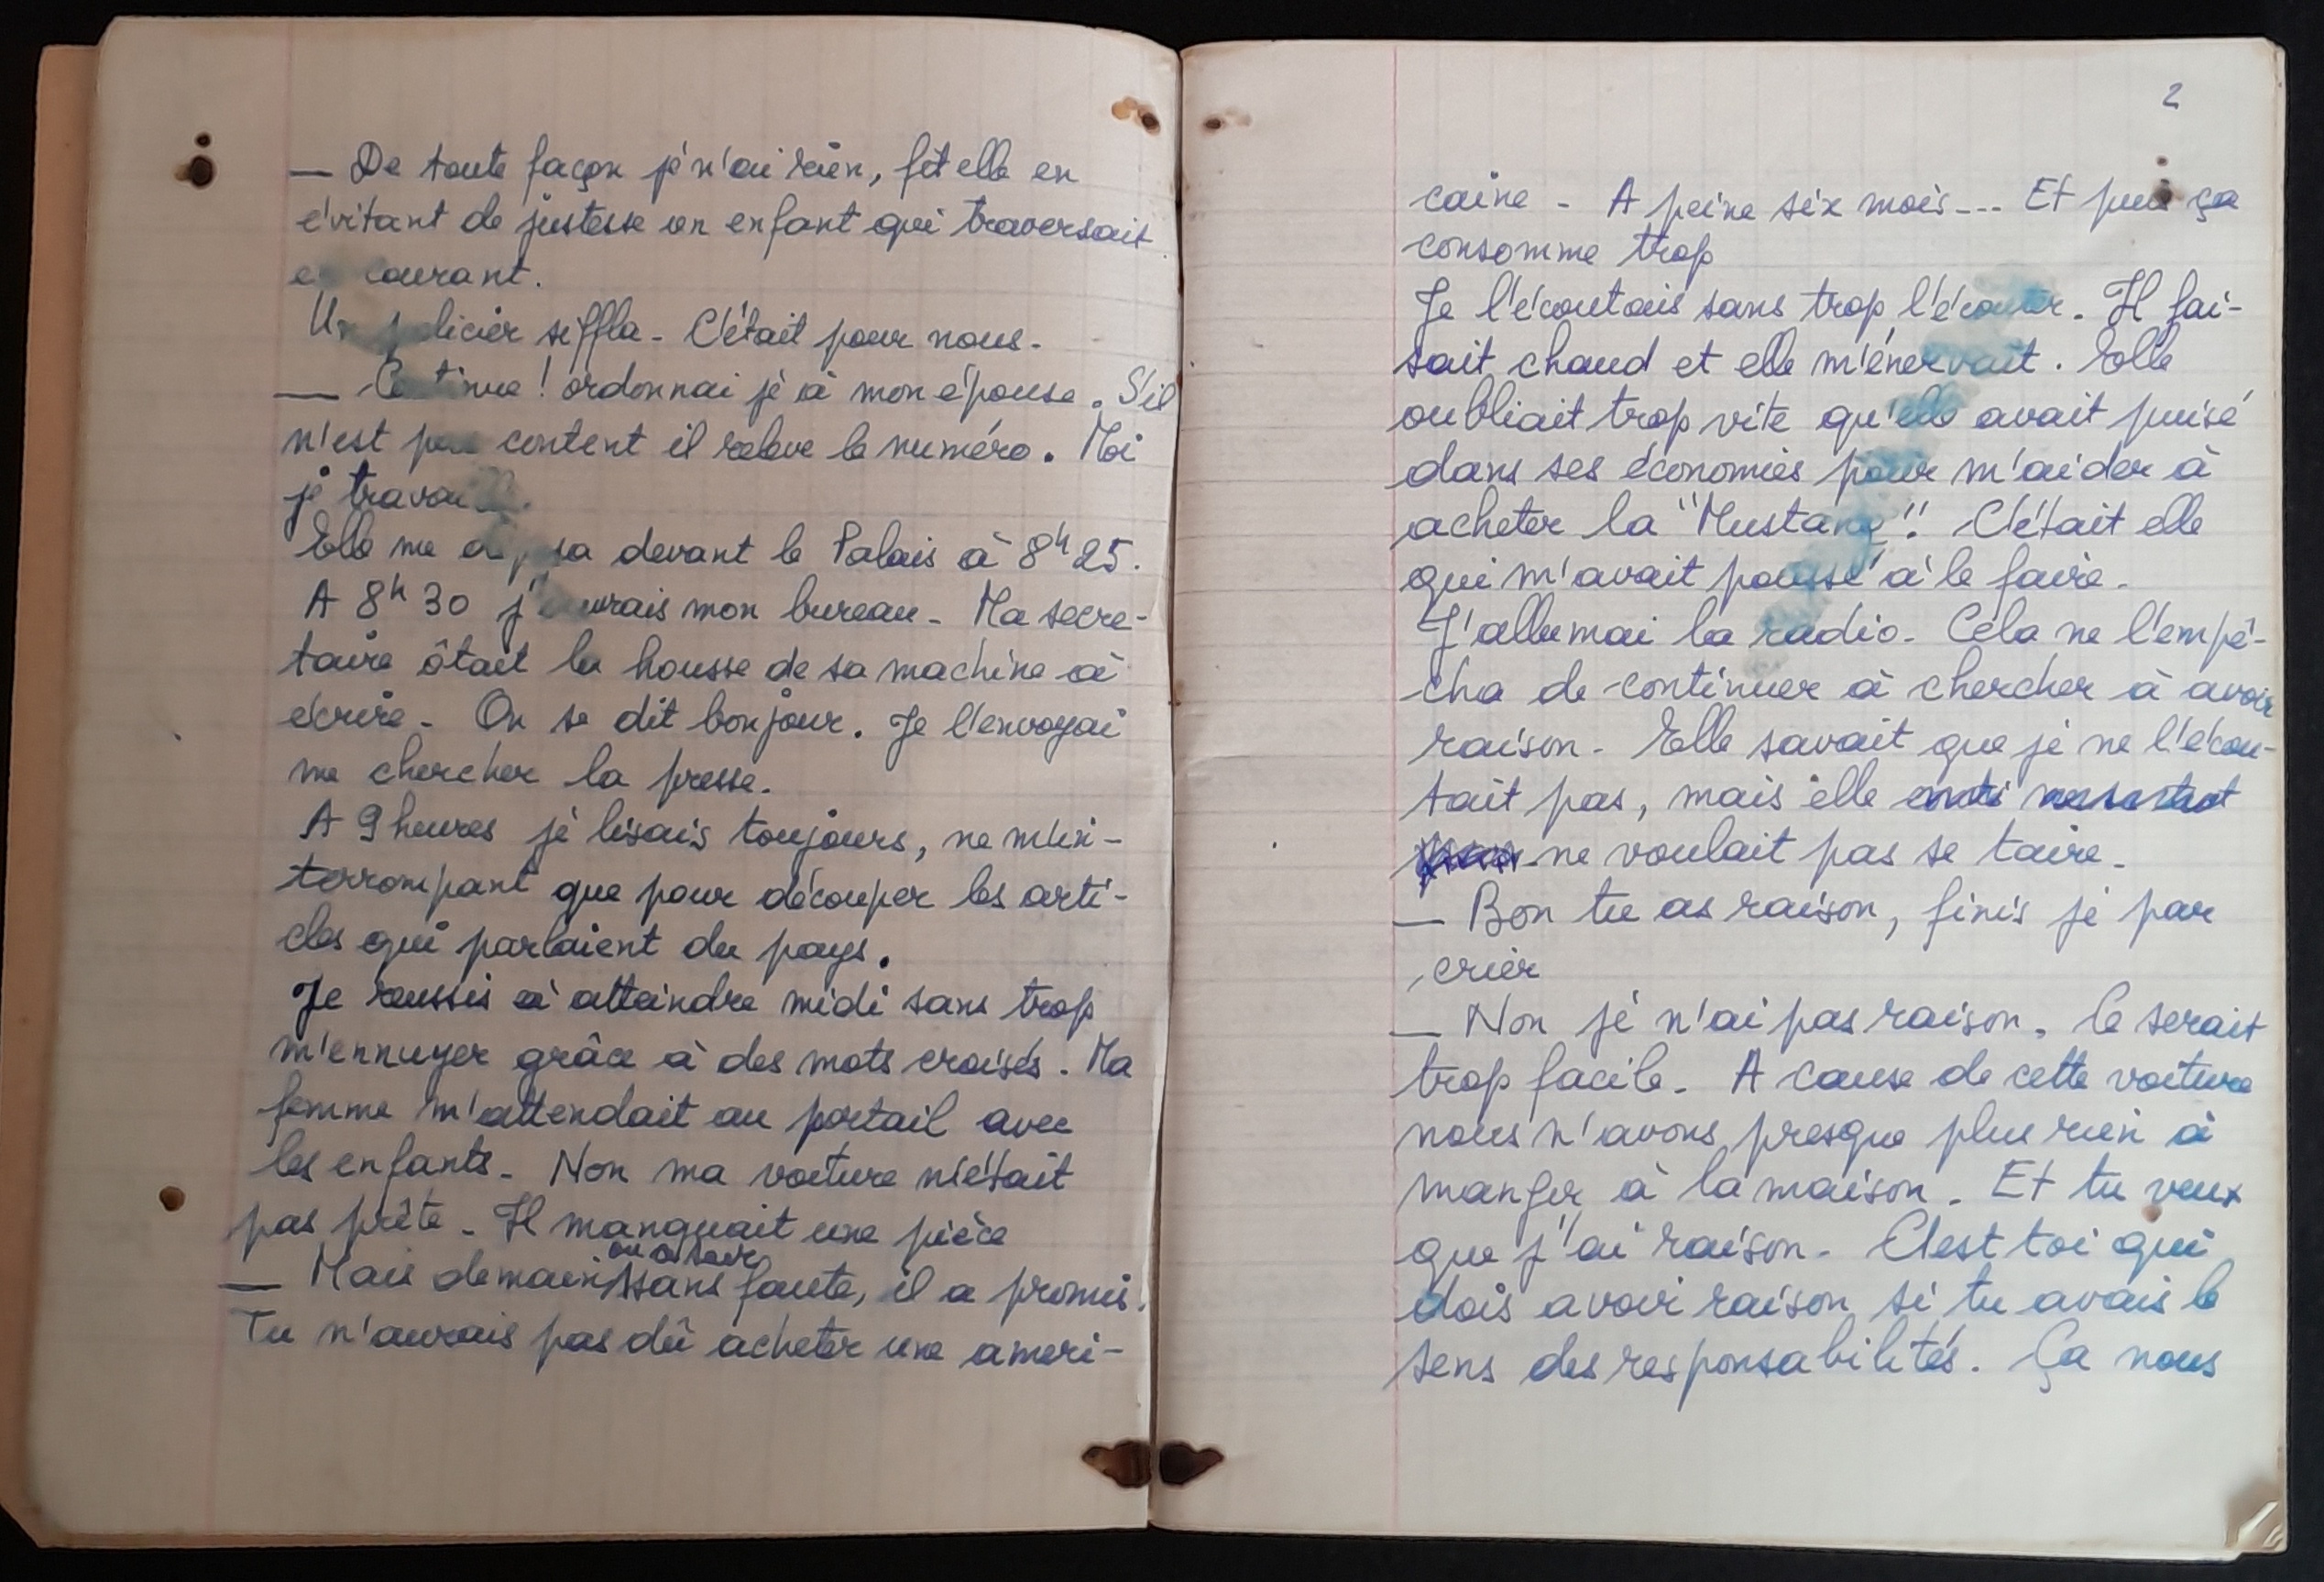 — De toute façon je n'ai rien, fit elle en
évitant de justesse un enfant qui traversait
en courant.
Un policier siffla. C'était pour nous.
— Continue ! ordonnai je à mon épouse. S'il
n'est pas content il relève le numéro. Moi
je travaille.
Elle me déposa devant le Palais à 8h 25.
A 8h 30 j'ouvrais mon bureau. Ma secre-
taire ôtait la housse de sa machine à
écrire. On se dit bonjour. Je l'envoyai
me chercher la presse.
A 9 heures je lisais toujours, ne m'in-
terrompant que pour découper les arti-
cles qui parlaient du pays.
Je reussis à atteindre midi sans trop
m'ennuyer grâce à des mots croisés. Ma
femme m'attendait au portail avec
les enfants. Non ma voiture n'était
pas prête. Il manquait une pièce
— Mais demain, sans faute, il a promis.
Tu n'aurais pas dû acheter une ameri-
2
caine - A peine six mois... Et puis ça
consomme trop
Je l'écoutais sans trop l'écouter. Il fai-
sait chaud et elle m'énervait. Elle
oubliait trop vite qu'elle avait puisé
dans ses économies pour m'aider à
acheter la "Mustang". C'était elle
qui m'avait poussé à le faire.
J'allumai la radio. Cela ne l'empê-
cha de continuer à chercher à avoir
raison. Elle savait que je ne l'écou-
tait pas, mais elle
ne voulait pas se taire.
— Bon tu as raison, finis je par
crier
— Non je n'ai pas raison. Ce serait
trop facile. A cause de cette voiture
nous n'avons presque plus rien à
manger à la maison. Et tu veux
que j'ai raison. C'est toi qui
dois avoir raison si tu avais le
sens des responsabilités. Ça nous